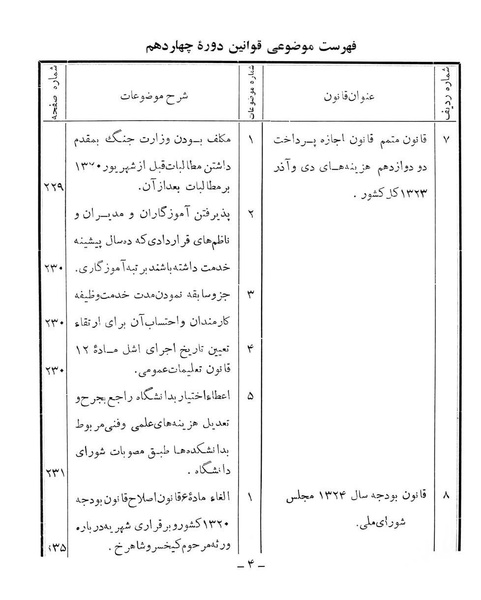 فهرست موضوعی قوانین دورهٔ چهاردهم
شماره ردیف
عنوان قانون
شماره موضوعات
شرح موضوعات
شماره صفحه
۷
قانون متمم قانون اجازه پرداخت
دو دوازدهم هزینه‌های دی و آذر
۱۳۲۳ کل کشور .
۱
مکلف بودن وزارت جنگ بمقدم
داشتن مطالبات قبل از شهریور ۱۳۲۰
بر مطالبات بعد از آن.
۲۲۹
۲
پذیرفتن آموزگاران و مدیران و
ناظم‌های قراردادی که ده سال پیشینه
خدمت داشته باشند بر تبه آموزگاری.
۲۳۰
۳
جزو سابقه نمودن مدت خدمت وظیفه
کارمندان و احتساب آن برای ارتقاء
۲۳۰
۴
تعیین تاریخ اجرای اشل مادهٔ ۱۲
قانون تعلیمات عمومی.
۲۳۰
۵
اعطاء اختیار بدانشگاه راجع بجرح و
تعدیل هزینه‌های علمی وفنی مربوط
بدانشکده‌ها طبق مصوبات شورای
دانشگاه .
۲۳۱
۸
قانون بودجه سال ۱۳۲۴ مجلس
شورای ملی.
۱
الغاء مادهٔ ۶ قانون اصلاح قانون بودجه
۱۳۲۰ کشور و برقراری شهریه درباره
ورثه مرحوم کیخسرو شاهرخ.
– ۴ –